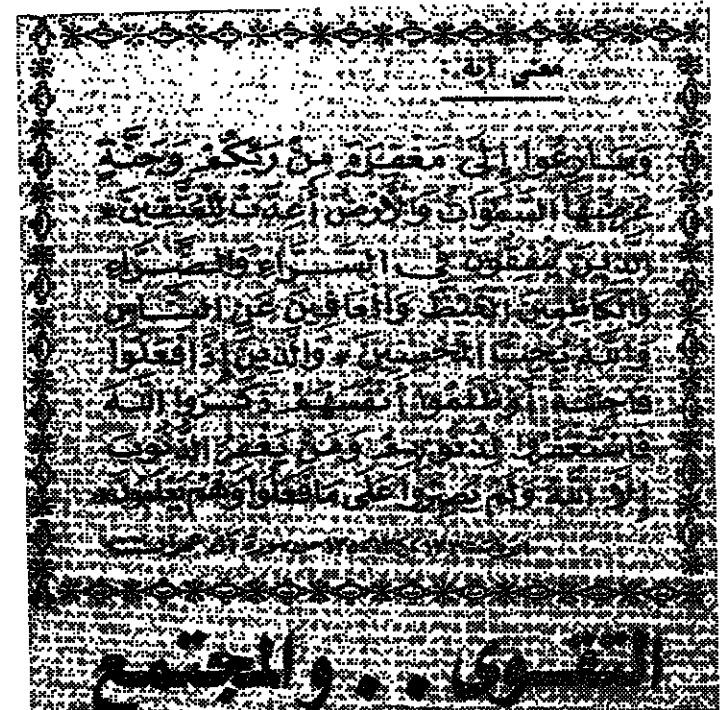 معنى آية:
وَسَارِعُوا إِلَىٰ مَغْفِرَةٍ مِّنْ رَبِّكُمْ وَجَنَّةٍ
عَرْضُهَا السَّمَوَاتُ وَالْأَرْضُ أُعِدَّتْ لِلْمُتَّقِينَ *
الَّذِينَ يُنفِقُونَ فِي السَّرَّاءِ وَالضَّرَّاءِ
وَالْكَاظِمِينَ الْغَيْظَ وَالْعَافِينَ عَنِ النَّاسِ
وَاللَّهُ يُحِبُّ الْمُحْسِنِينَ * وَالَّذِينَ إِذَا فَعَلُوا
فَاحِشَةً أَوْ ظَلَمُوا أَنْفُسَهُمْ ذَكَرُوا اللَّهَ
فَاسْتَغْفَرُوا لِذُنُوبِهِمْ وَمَنْ يَغْفِرُ الذُّنُوبَ
إِلَّا اللَّهُ وَلَمْ يُصِرُّوا عَلَىٰ مَا فَعَلُوا وَهُمْ يَعْلَمُونَ *
التقوى .. والمجتمع